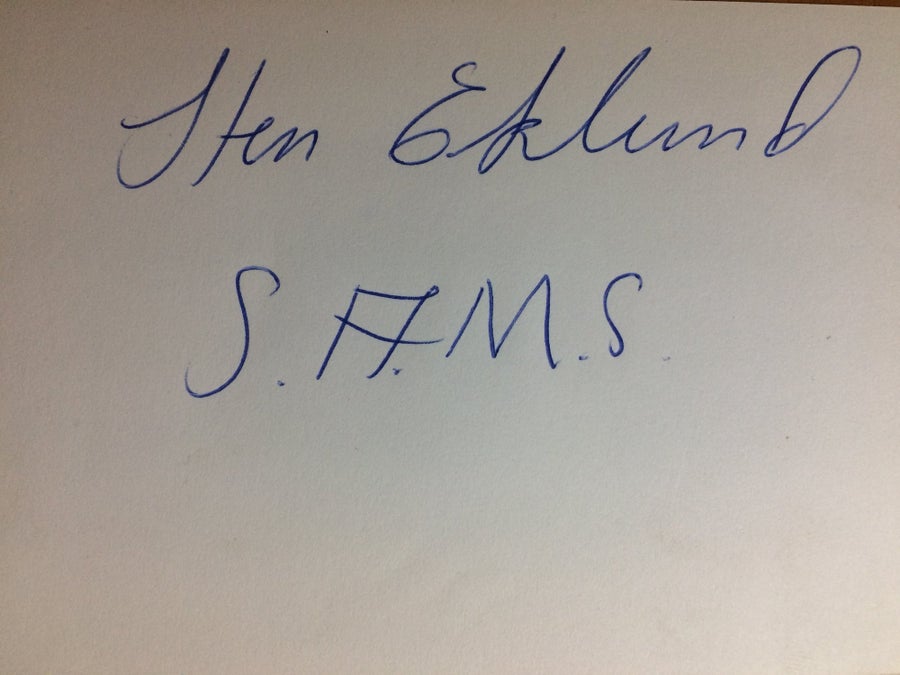 Sten Eklund
S.A.M.S.